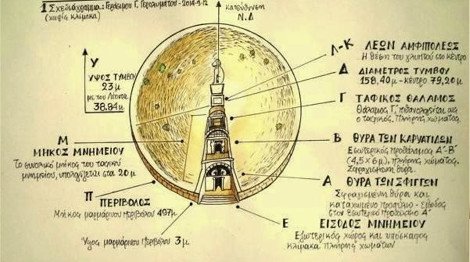 1 Σχεδιάγραμμα: Γεράσιμου Γ. Γερολυμάτου - 2014-9-12
(χωρίς κλίμακα)
κατεύθυνση
Ν.Δ
Υ
ΥΨΟΣ ΤΥΜΒΟΥ
23 μ
με τον Λέοντα
38.84 μ
Μ
ΜΗΚΟΣ ΜΝΗΜΕΙΟΥ
Το συνολικό μήκος του ταφικού
μνημείου, υπολογίζεται στα 20 μ
Π
ΠΕΡΙΒΟΛΟΣ
Μήκος μαρμάρινου Περιβόλου 497μ
Ύψος μαρμάρινου Περιβόλου 3 μ
Λ-Κ ΛΕΩΝ ΑΜΦΙΠΟΛΕΩΣ
Η θέση του γλυπτού στο κέντρο
Δ ΔΙΑΜΕΤΡΟΣ ΤΥΜΒΟΥ
158,40μ - κέντρο 79,20μ
Γ ΤΑΦΙΚΟΣ ΘΑΛΑΜΟΣ
Θάλαμος Γ,
ο ταφικός, Πλήρης χώματος.
Β ΘΥΡΑ ΤΩΝ ΚΑΡΥΑΤΙΔΩΝ
Εσωτερικός προθάλαμος Α'-Β'
(4,5 x 6 μ), πλήρης χώματος.
Σφραγισμένη θύρα.
Α ΘΥΡΑ ΤΩΝ ΣΦΙΓΓΩΝ
Σφραγισμένη θύρα και
στον Εξωτερικό Προθάλαμο Α'
Ε ΕΙΣΟΔΟΣ ΜΝΗΜΕΙΟΥ
Εξωτερικός χώρος και
κλίμακα Πλήρης χωμάτων